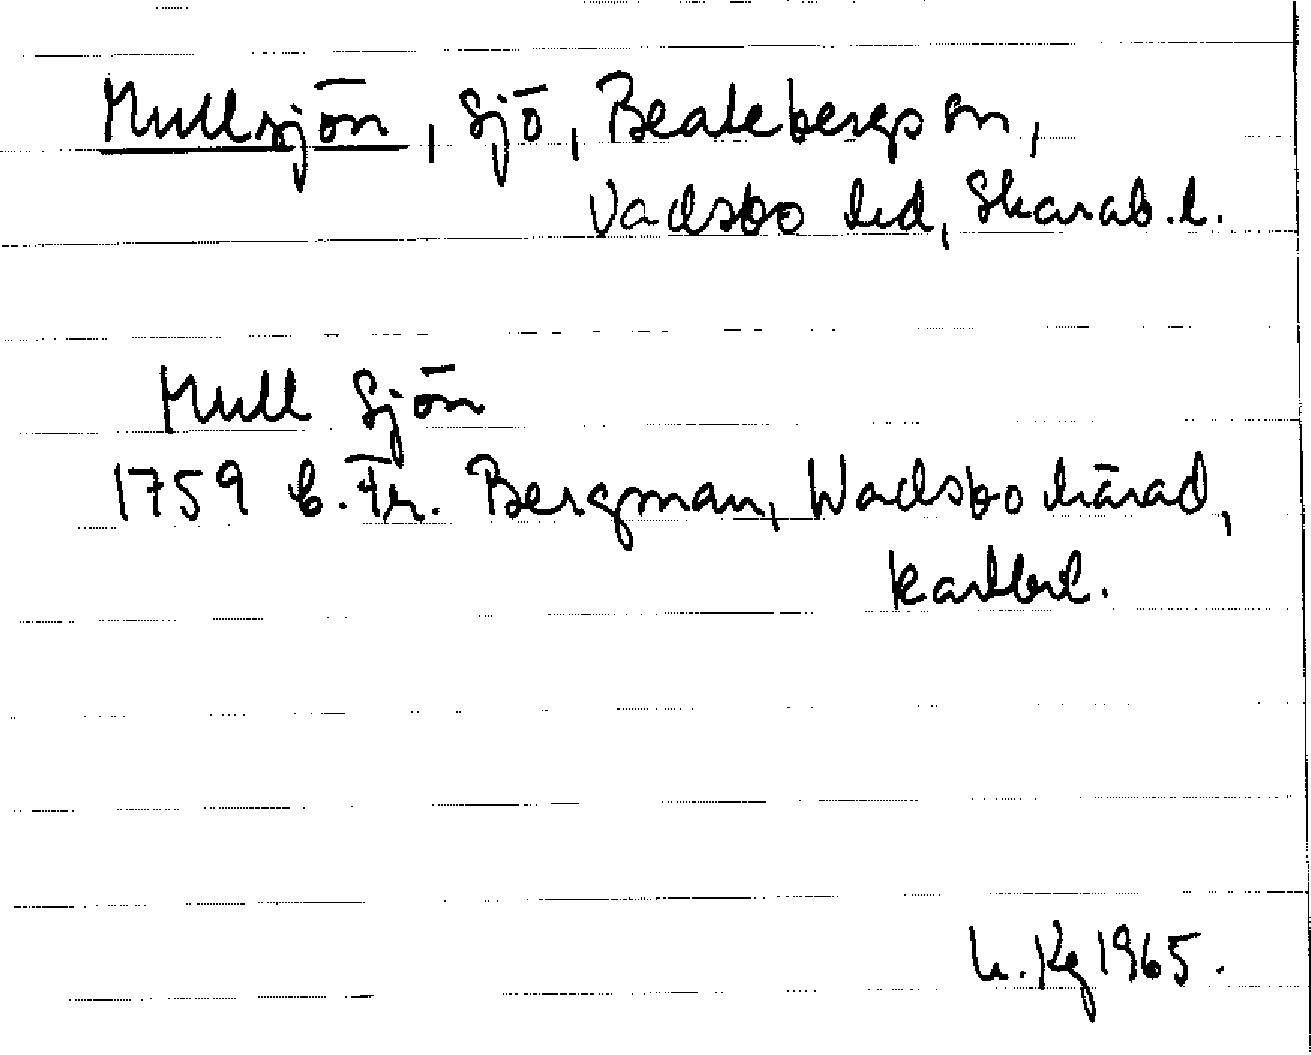 Mullsjön, sjö, Beatebergs sn,
Vadsbo hd, Skarab.l.
Mull Sjön
1759 C. Fr. Bergman, Wadsbo härad,
kartbl.
Kg 1965.